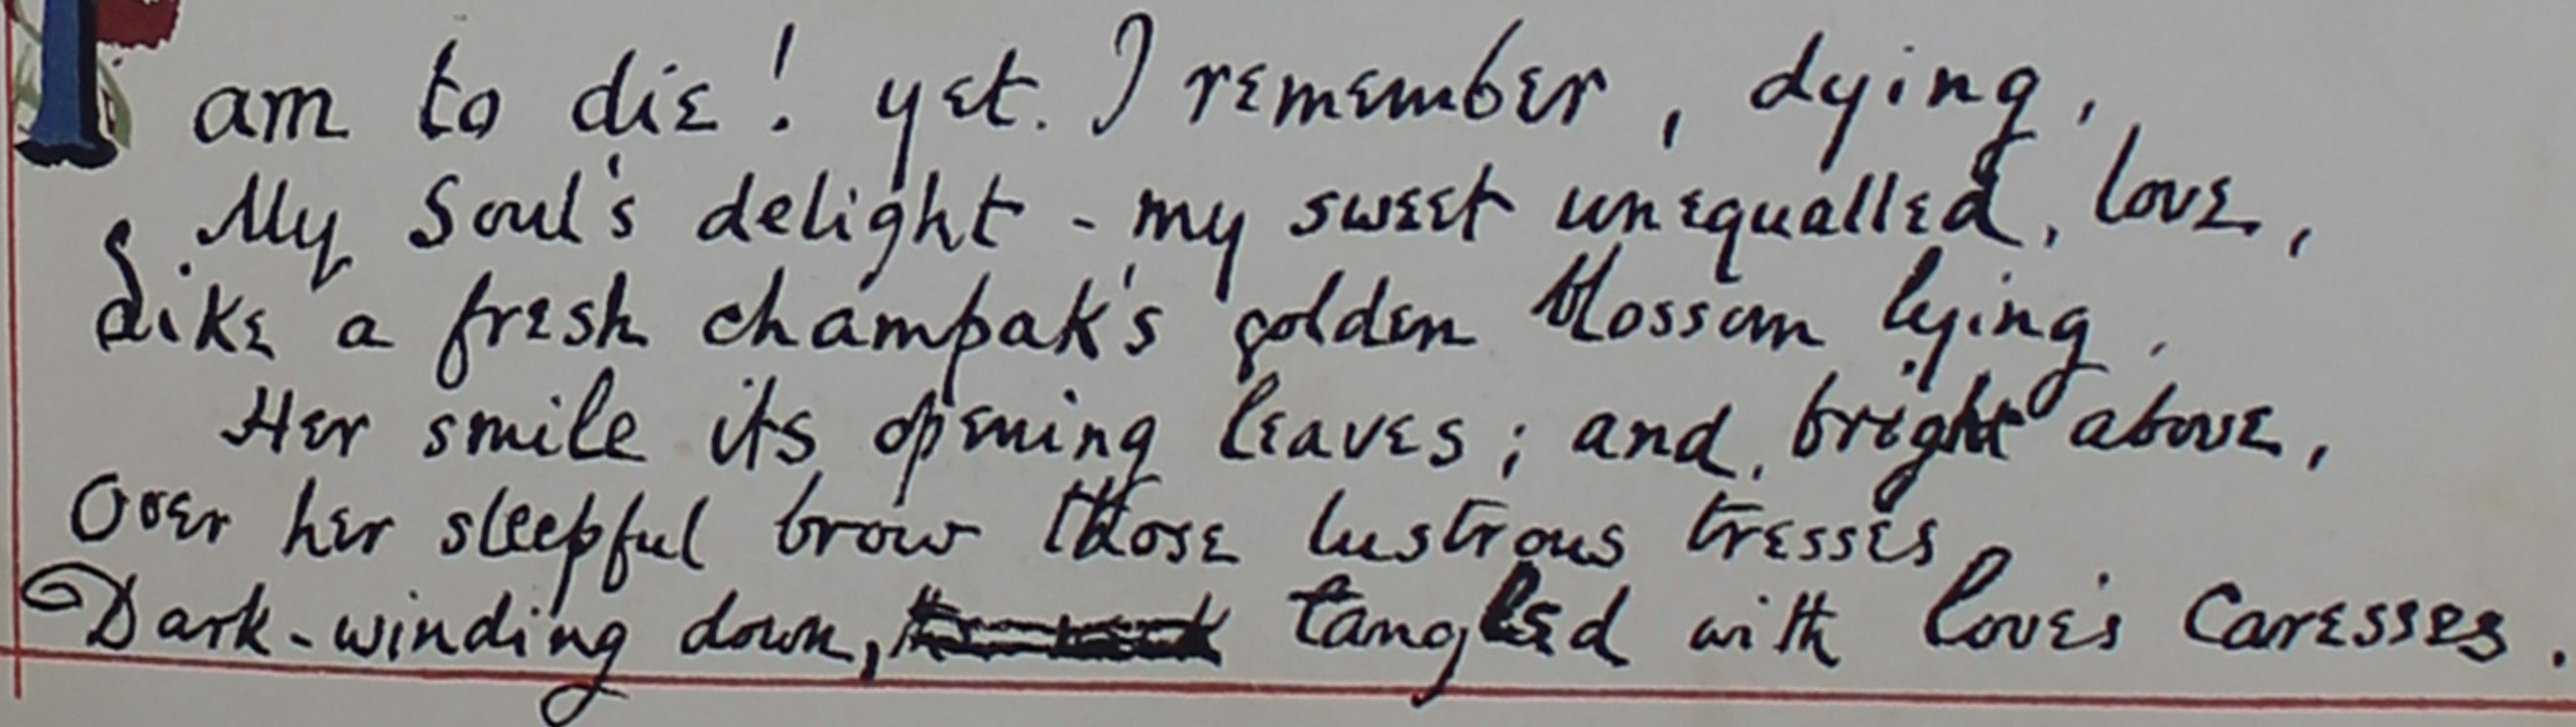 I am to die! yet. I remember, dying,
My Soul's delight - my sweet unequalled, love,
Like a fresh champak's golden blossom lying,
Her smile its opening leaves; and, bright above,
Over her sleepful brow those lustrous tresses
Dark-winding down, tangled with love's Caresses.